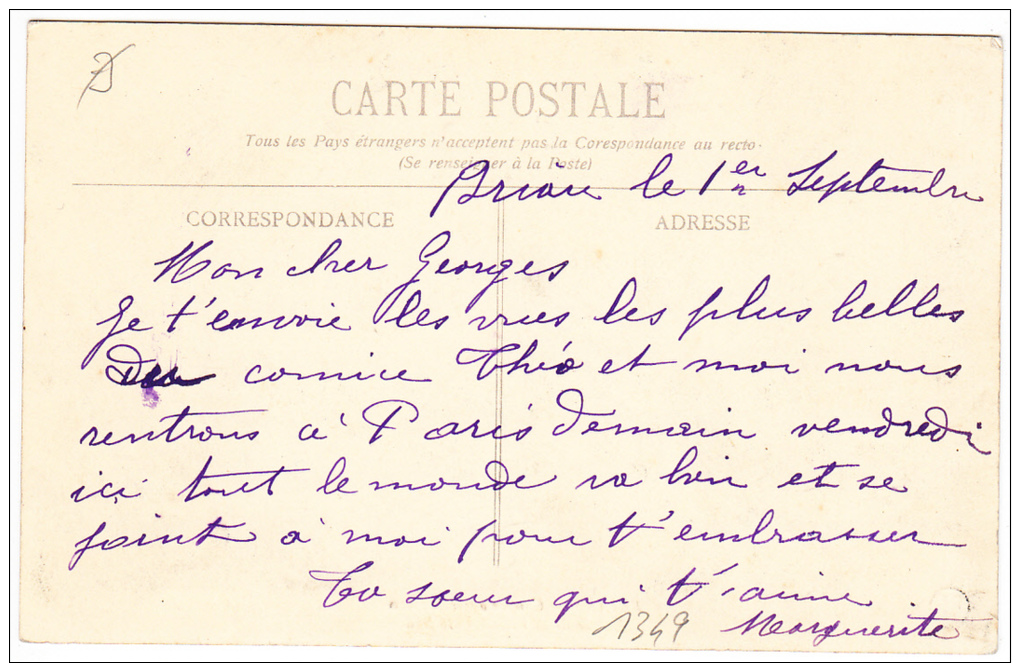 CARTE POSTALE
Tous les Pays étrangers n'acceptent pas la Corespondance au recto.
(Se renseigner à la Poste)
le 1er Septembre
CORRESPONDANCE
ADRESSE
Mon cher Georges
Je t'envoie les vues les plus belles
du comice Théo et moi nous
rentrons à Paris demain vendredi
ici tout le monde va bien et se
joint à moi pour t'embrasser
Ta soeur qui t'aime
1349
Marguerite